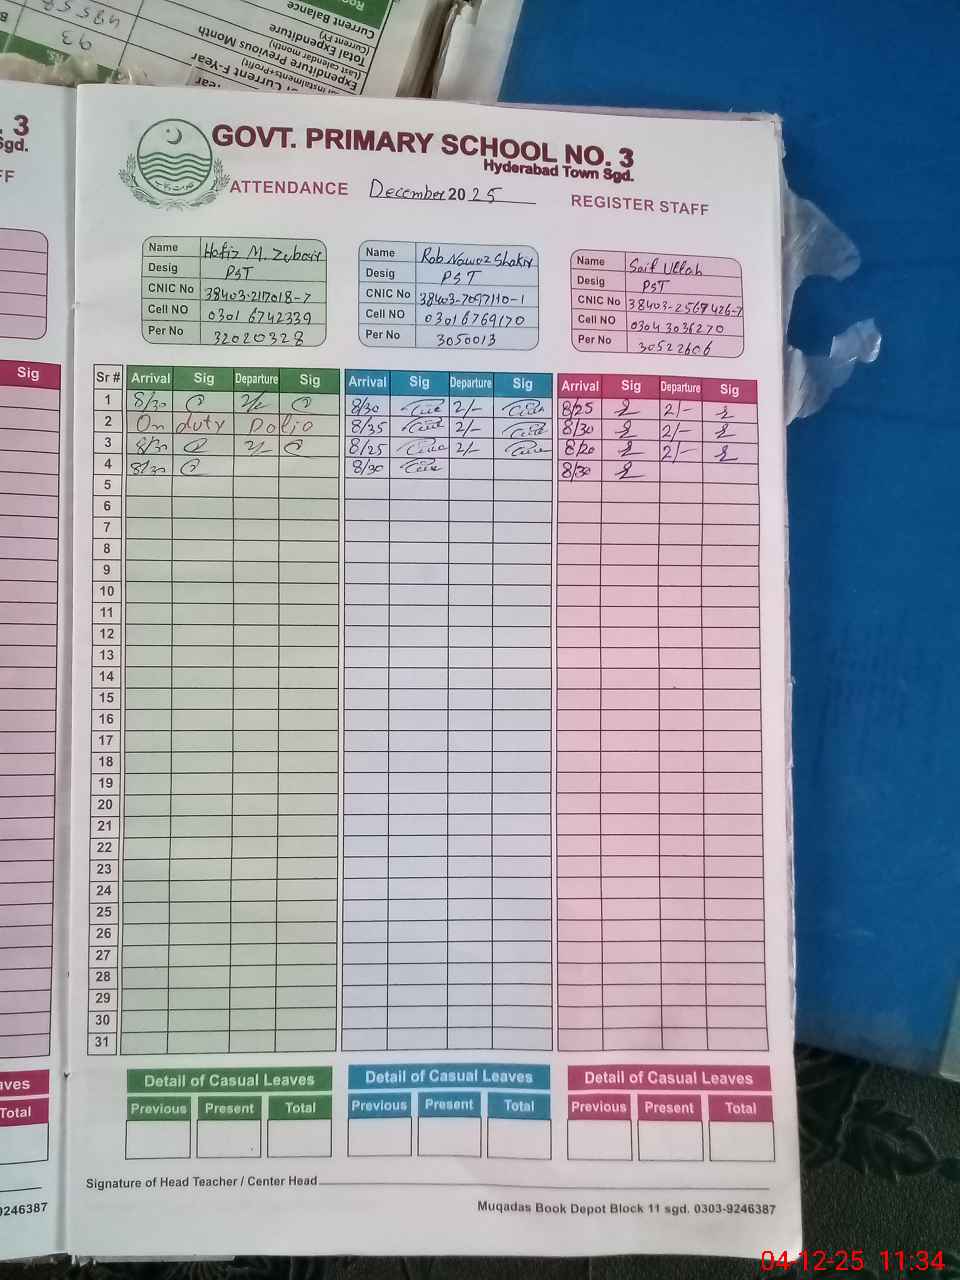 48558
93
Current Balance
(Current FY)
Total Expenditure
(Last calendar month)
Expenditure Previous Month
instalments+Profit)
Current F-Year
Rs.
. 3
Sgd.
GOVT. PRIMARY SCHOOL NO. 3
Hyderabad Town Sgd.
ATTENDANCE December 2025 REGISTER STAFF
Name Hafiz M. Zubair
Desig PST
CNIC No 38403-217018-7
Cell NO 0301 6742339
Per No 32020328
Name Rab Nawaz Shakir
Desig PST
CNIC No 38403-7097110-1
Cell NO 03016769170
Per No 3050013
Name Saif Ullah
Desig PST
CNIC No 38403-2567426-7
Cell NO 0304 3036270
Per No 30522606
Sig
Sr # Arrival Sig Departure Sig Arrival Sig Departure Sig Arrival Sig Departure Sig
1 8/30 2/- 8/30 2/- 8/25 2/-
2 On duty Polio 8/35 2/- 8/30 2/-
3 8/30 2/- 8/25 2/- 8/20 2/-
4 8/30 8/30 8/30
5
6
7
8
9
10
11
12
13
14
15
16
17
18
19
20
21
22
23
24
25
26
27
28
29
30
31
aves
Total
Detail of Casual Leaves Detail of Casual Leaves Detail of Casual Leaves
Previous Present Total Previous Present Total Previous Present Total
Signature of Head Teacher / Center Head
9246387
Muqadas Book Depot Block 11 sgd. 0303-9246387
04-12-25 11:34